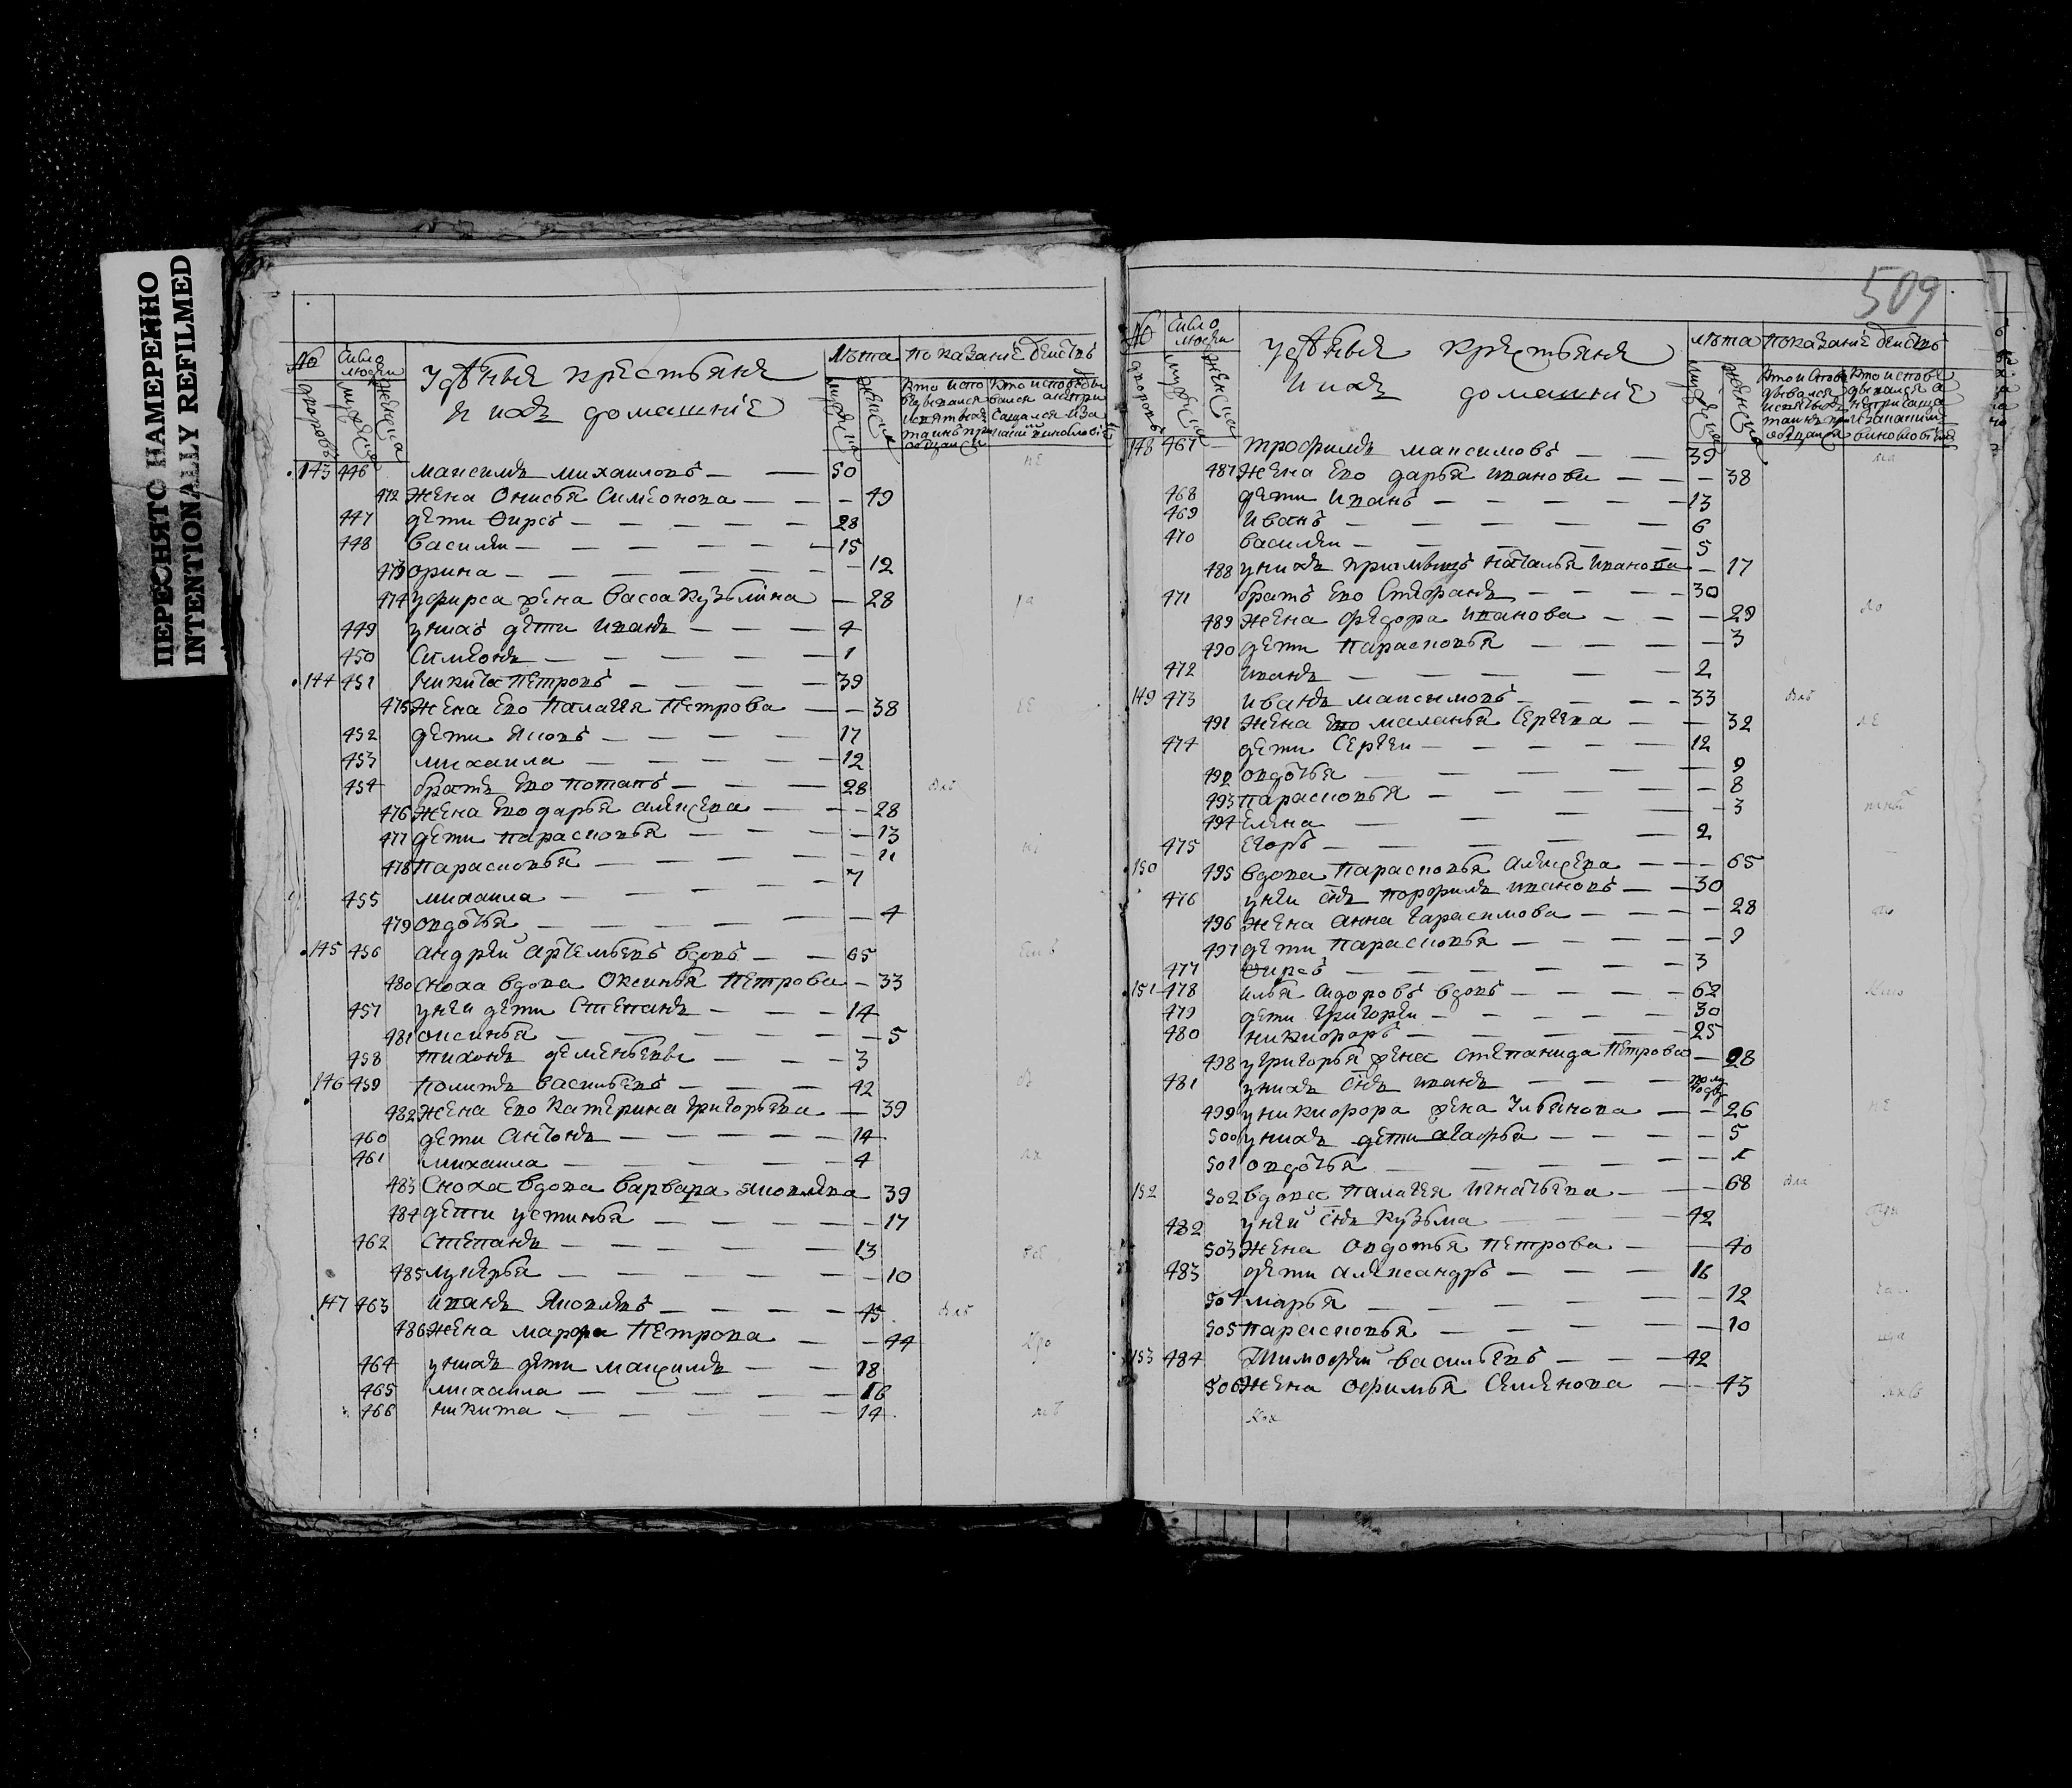 ПЕРЕСНЯТО НАМЕРЕННО
INTENTIONALLY REFILMED
№ Число людей
дворовъ мужеска женска
Удѣлныя крестьяня
и ихъ домашніе
Лѣта показаніе
мужеска женска
143 446 максимъ михаиловъ — — 50
472 жена Онисья Симеонова — — — 49
447 дети Фирсъ — — — — — 28
448 василеи — — — — — 15
473 орина — — — — — — 12
474 уфирса жена васса кузьмина — 28
449 унихъ дети иванъ — — — 4
450 Симеонъ — — — — — 1
144 451 Никита Петровъ — — — — 39
475 жена Ево Палагея Петрова — — 38
452 дети Яковъ — — — — 17
453 михаила — — — — — 12
454 братъ Ево Потапъ — — — 28
476 жена Ево дарья алексева — — — 28
477 дети парасковья — — — — 13
478 парасковья — — — — — 11
455 михаила — — — — — 7
479 овдотья — — — — — 4
145 456 андрей артемьевъ вдовъ — — 65
480 сноха вдова Оксинья Петрова — 33
457 унеи дети Степанъ — — — 14
481 оксинья — — — — — 5
458 тихонъ — — — 3
146 459 васильевъ — — — 42
482 жена Ево катерина григорьева — 39
460 дети антонъ — — — — — 14
461 михаила — — — — — 4
483 Сноха вдова варвара яковлева 39
484 дети устинья — — — — — 17
462 Степанъ — — — — — 13
485 лукерья — — — — — — 10
147 463 иванъ Яковлевъ — — — — 45
486 жена марфа Петрова — — 44
464 унихъ дети максимъ — — 18
465 михаила — — — — — 16
466 никита — — — — — 14
509
№ Число людей
дворовъ мужеска женска
Удѣлныя крестьяня
и ихъ домашніе
лѣта показаніе
мужеска женска
148 467 трофимъ максимовъ — — 39
487 жена Ево дарья иванова — — — 38
468 дети иванъ — — — — — 13
469 иванъ — — — — — 6
470 василеи — — — — — 5
488 унихъ наталья иванова — 17
471 братъ Ево Стефанъ — — — — 30
489 жена федора иванова — — — 29
490 дети парасковья — — — — 3
472 иванъ — — — — — 2
149 473 иванъ максимовъ — — — — 33
491 жена Ево маланья Сергеева — — 32
474 дети Сергеи — — — — — 12
492 овдотья — — — — — 9
493 парасковья — — — — — 8
494 Елена — — — — — 3
475 Егоръ — — — — — 2
150 495 вдова парасковья алексева — — 65
476 унеи снъ порфилъ ивановъ — — 30
496 жена анна гарасимова — — — — 28
497 дети парасковья — — — — — 9
477 Фирсъ — — — — — — 3
151 478 илья сидоровъ вдовъ — — — — 62
479 дети григореи — — — — — 30
480 никифоръ — — — — — 25
498 угригорья жена степанида петрова — 28
481 унихъ снъ иванъ — — — — полу году
499 уникифора жена — — 26
500 унихъ дети агафья — — — — 5
501 овдотья — — — — —
152 502 вдова палагея игнатьева — — — 68
482 унеи снъ кузьма — — — — 42
503 жена овдотья петрова — — 40
483 дети александръ — — — 16
504 марья — — — — — 12
505 парасковья — — — — — 10
153 484 Тимофеи васильевъ — — — 42
506 жена офимья Семенова — — 43